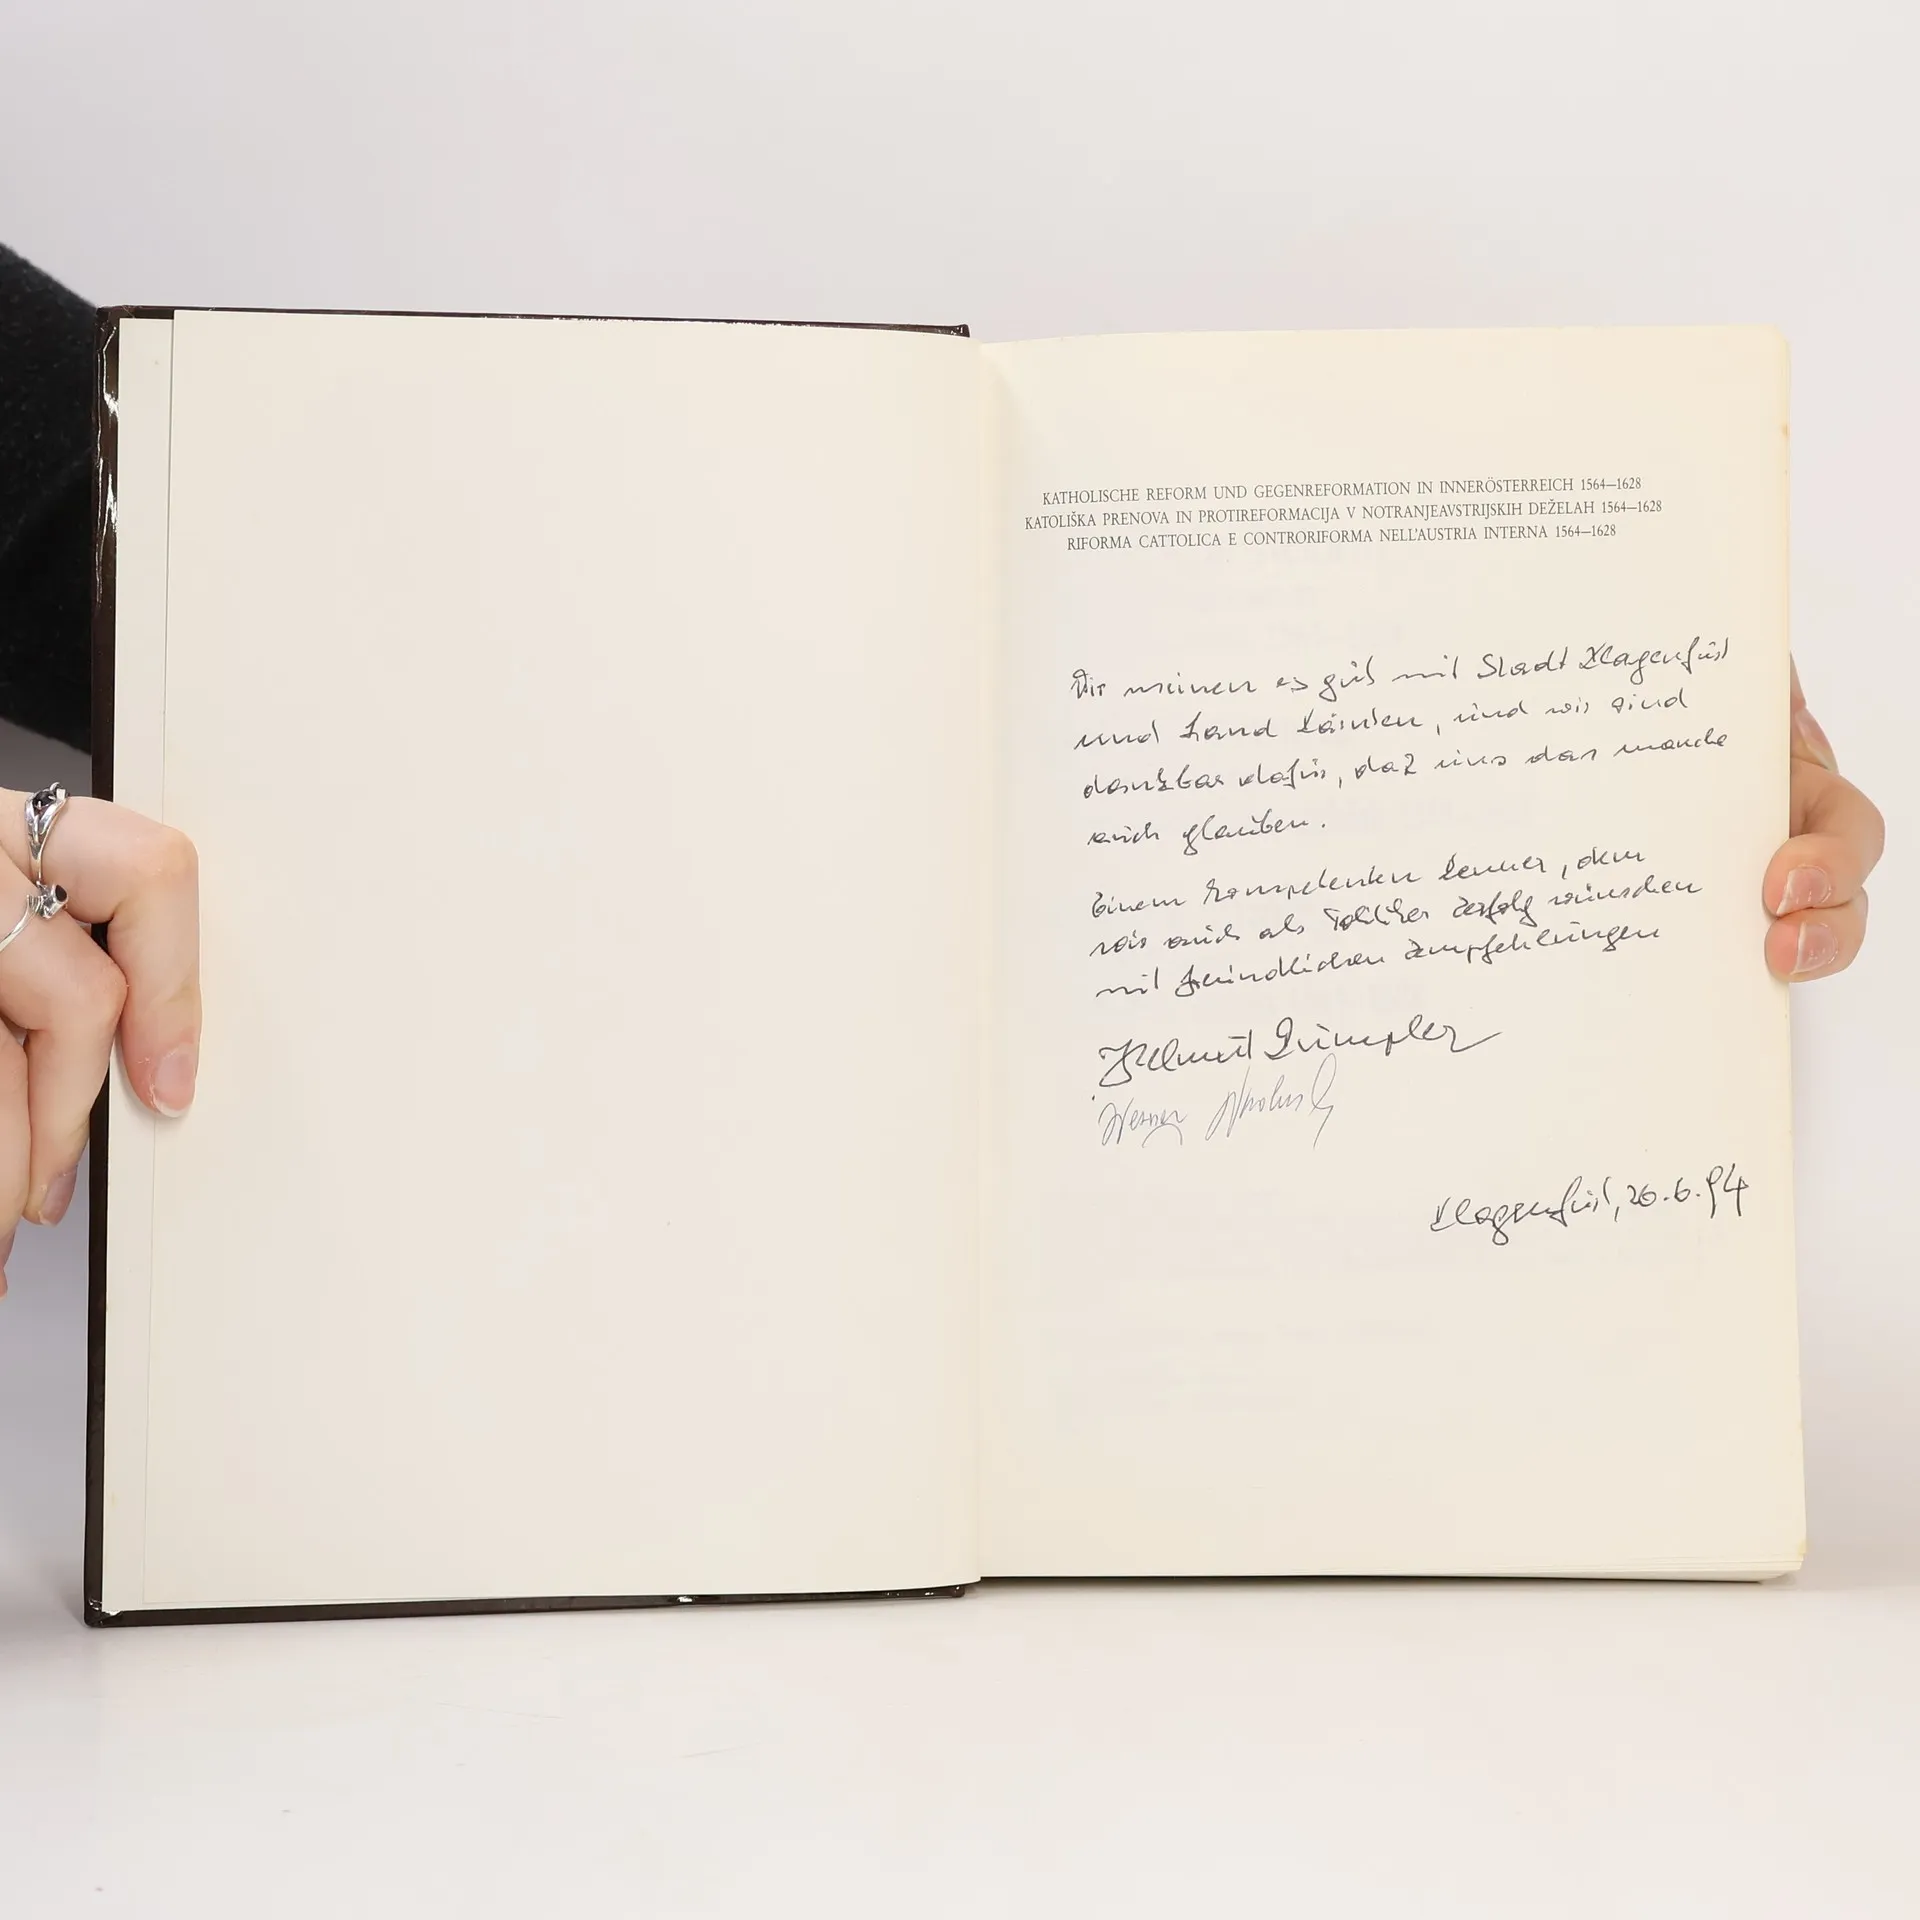 KATHOLISCHE REFORM UND GEGENREFORMATION IN INNERÖSTERREICH 1564—1628
KATOLIŠKA PRENOVA IN PROTIREFORMACIJA V NOTRANJEAVSTRIJSKIH DEŽELAH 1564—1628
RIFORMA CATTOLICA E CONTRORIFORMA NELL'AUSTRIA INTERNA 1564—1628
Wir meinen es gut mit Stadt Klagenfurt
und Land Kärnten, und wir sind
dankbar dafür, daß uns das manche
auch glauben.
Einem kompetenten Kenner, dem
wir auch als Politiker Erfolg wünschen
mit freundlichen Empfehlungen
Helmut Rumpler
Werner
Klagenfurt, 26.6.94